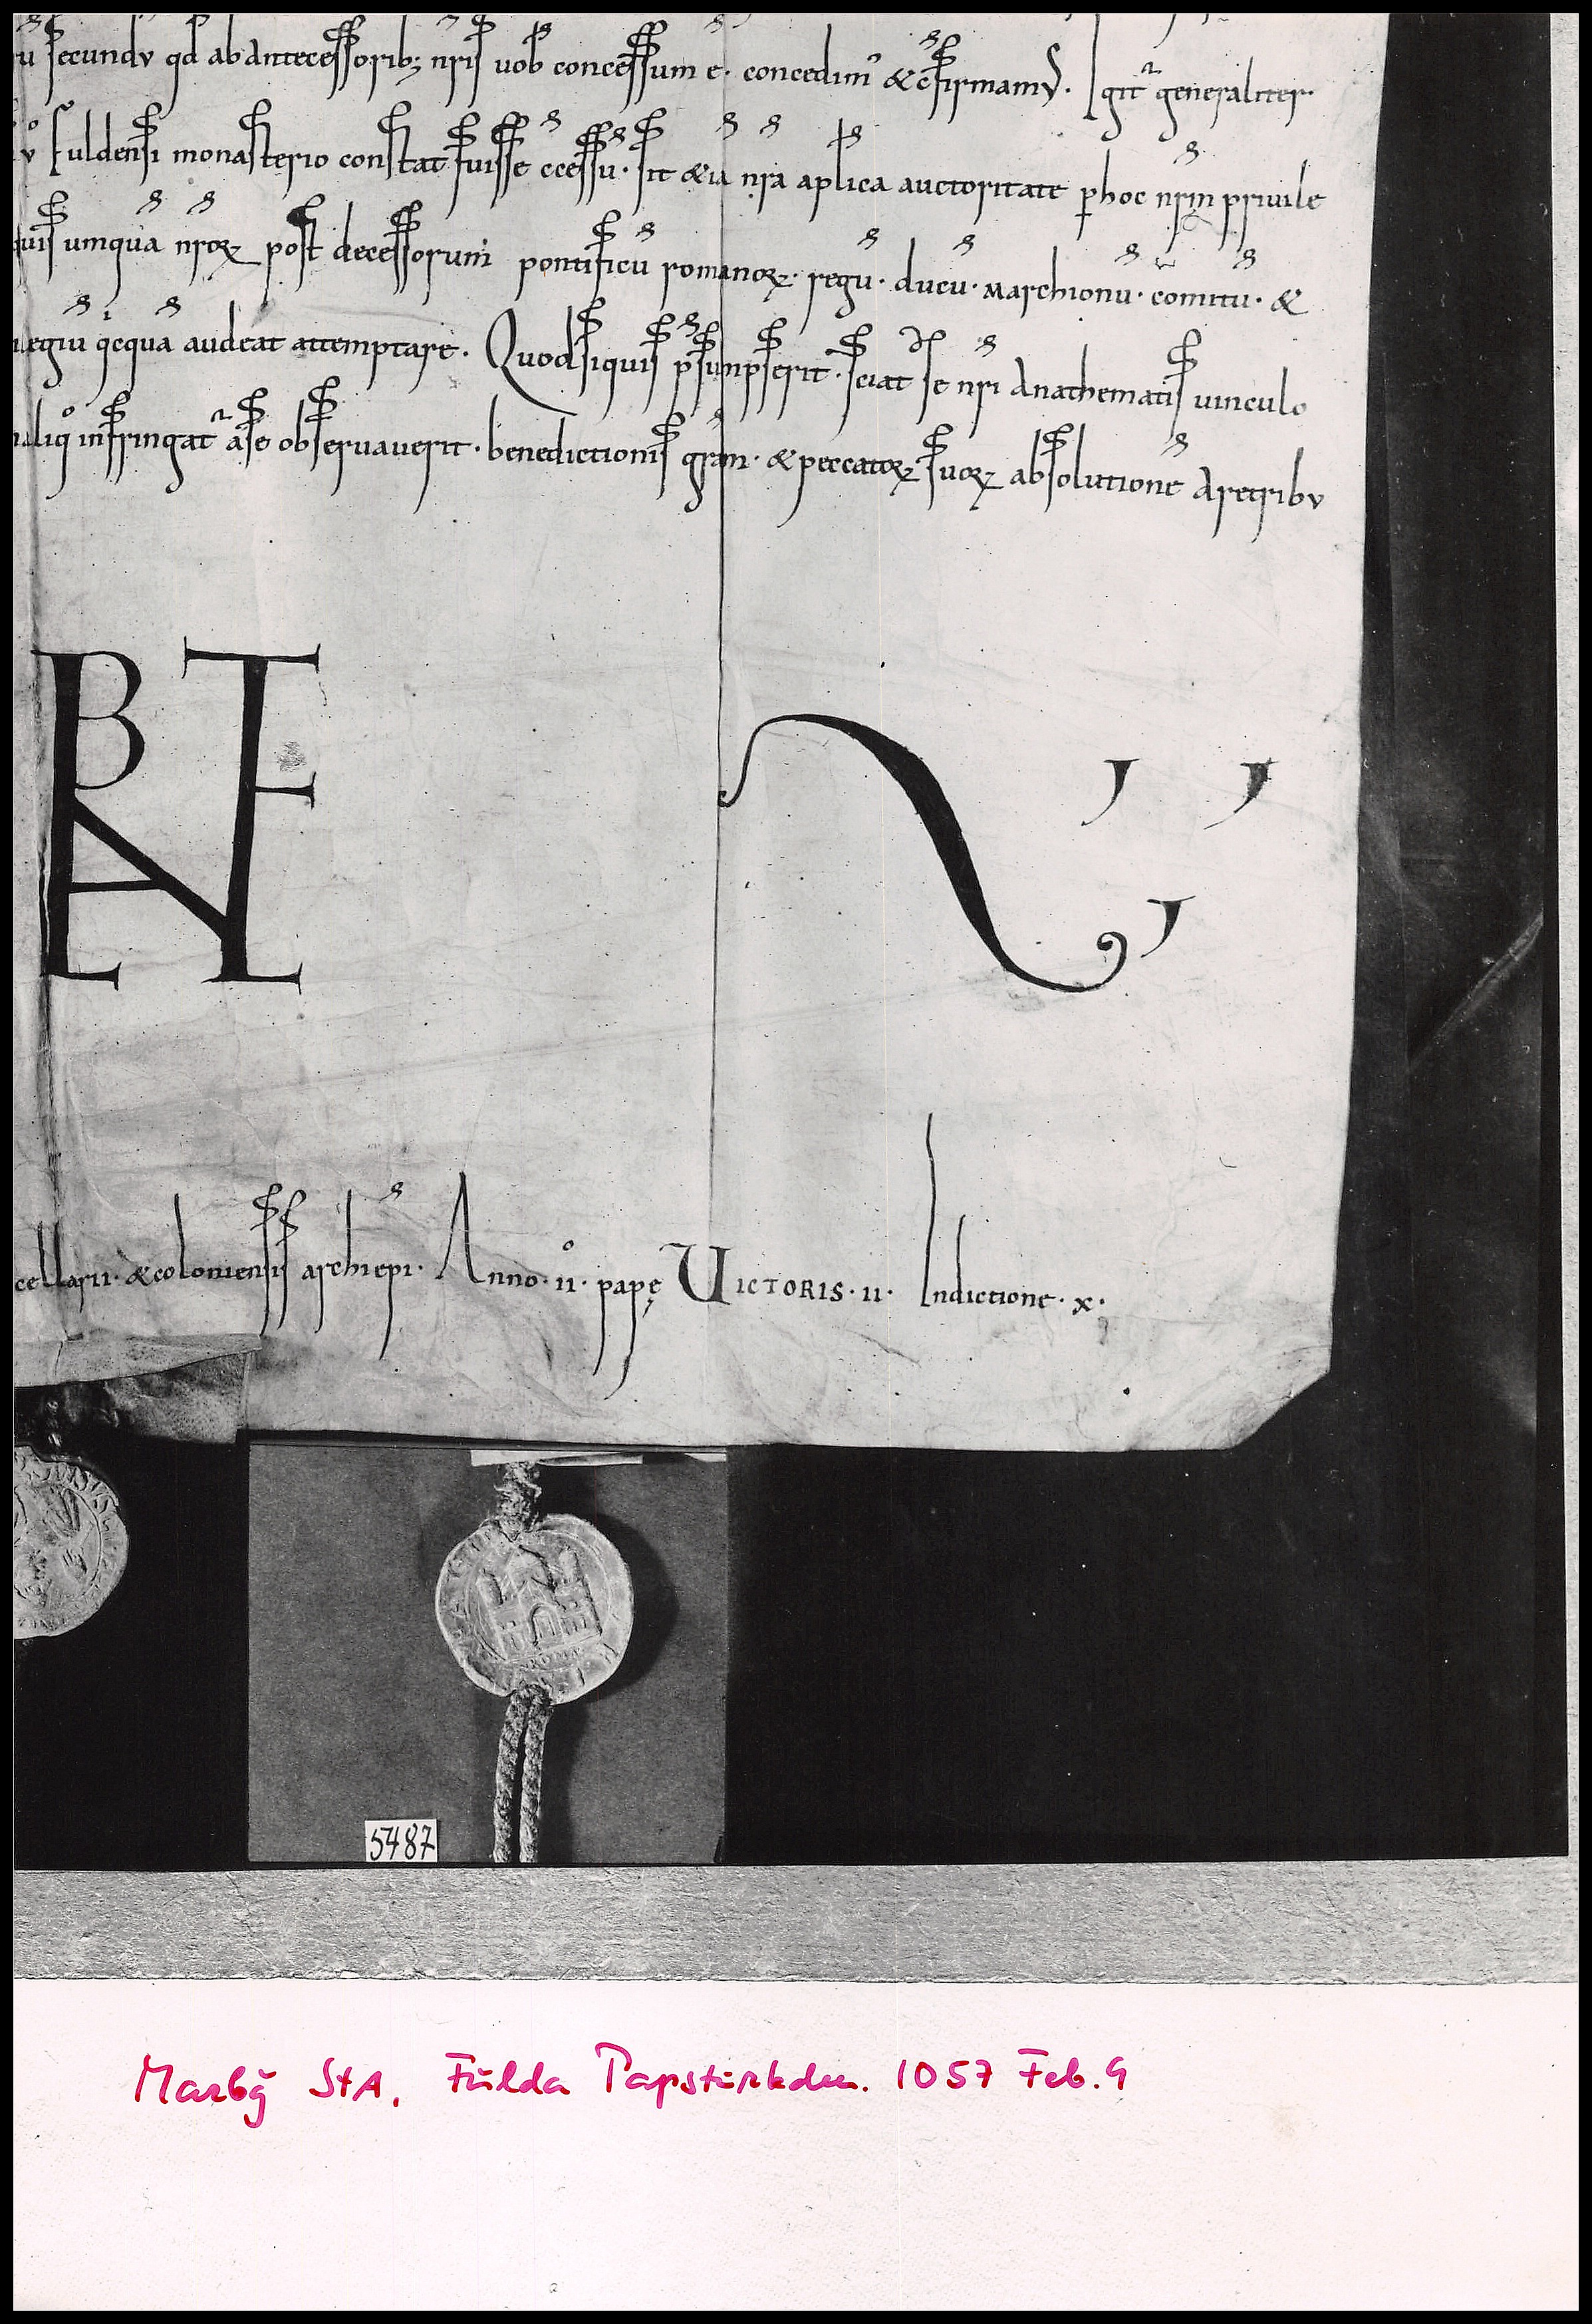 secundv qd ab antecessorib; nris uob concessum e· concedim &cfirmamus· Igit generaliter·
fuldensi monasterio constat fuisse ccessu· sit &ia nra aplica auctoritate p hoc nrm privile
quis umqua nror post decessorum pontificu romanor· regu· ducu· marchionu· comitu· &
legiu qcqua audeat attemptare· Quod siquis psumpserit· sciat se nri anathematis vinculo
infringat a se observaverit· benedictionis gram· & peccator suor absolutione A retribv
BENE VALETE
cellarii· & coloniensis archiepi· Anno· ii· pape VICTORIS· II· Indictione· x·
ROMA
5487
Marbg StA, Fulda Papsturkdn. 1057 Feb. 9